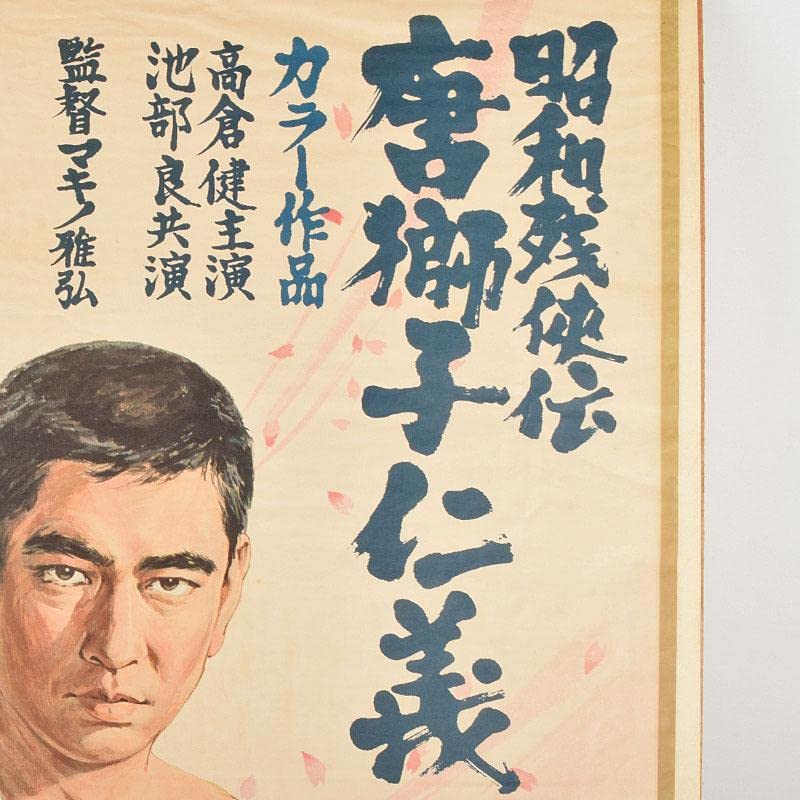 昭和残侠伝
唐獅子仁義
カラー作品
高倉健主演
池部良共演
監督マキノ雅弘